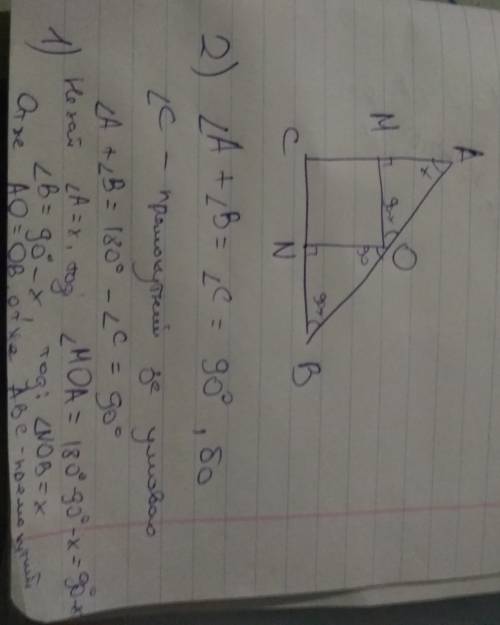 A
x
M
90-x
O
90
C
N
90-x
B
2) ∠A + ∠B = ∠C = 90°, бо
∠C - прямокутний за умовою
∠A + ∠B = 180° - ∠C = 90°
1) Нехай ∠A = x, тоді ∠MOA = 180° - 90° - x = 90° - x
∠B = 90° - x, тоді ∠NOB = x
Отже AO = OB отже ABC - прямокутний